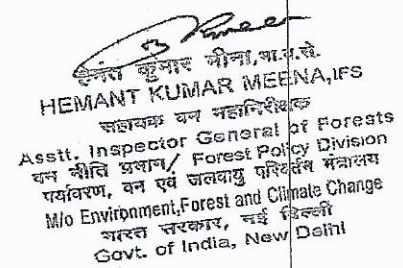 हेमंत कुमार मीना, भा.व.से.
HEMANT KUMAR MEENA, IFS
सहायक वन महानिरीक्षक
Asstt. Inspector General of Forests
वन नीति प्रभाग/ Forest Policy Division
पर्यावरण, वन एवं जलवायु परिवर्तन मंत्रालय
M/o Environment, Forest and Climate Change
भारत सरकार, नई दिल्ली
Govt. of India, New Delhi